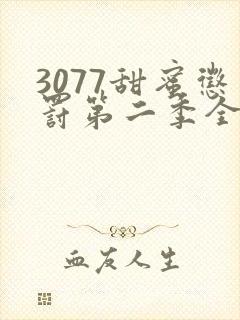 3077甜蜜惩
罚第二季全
血友人生